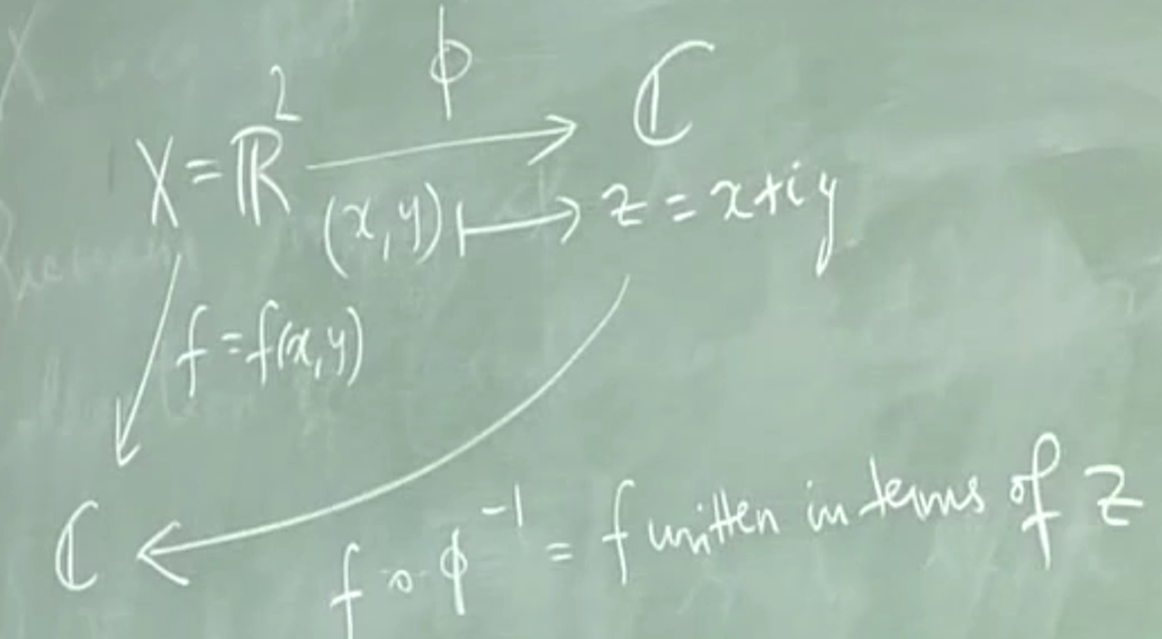 ϕ
X = ℝ² ⟶ ℂ
(x, y) ↦ z = x + iy
f = f(x, y)
ℂ
f ∘ ϕ⁻¹ = f written in terms of z